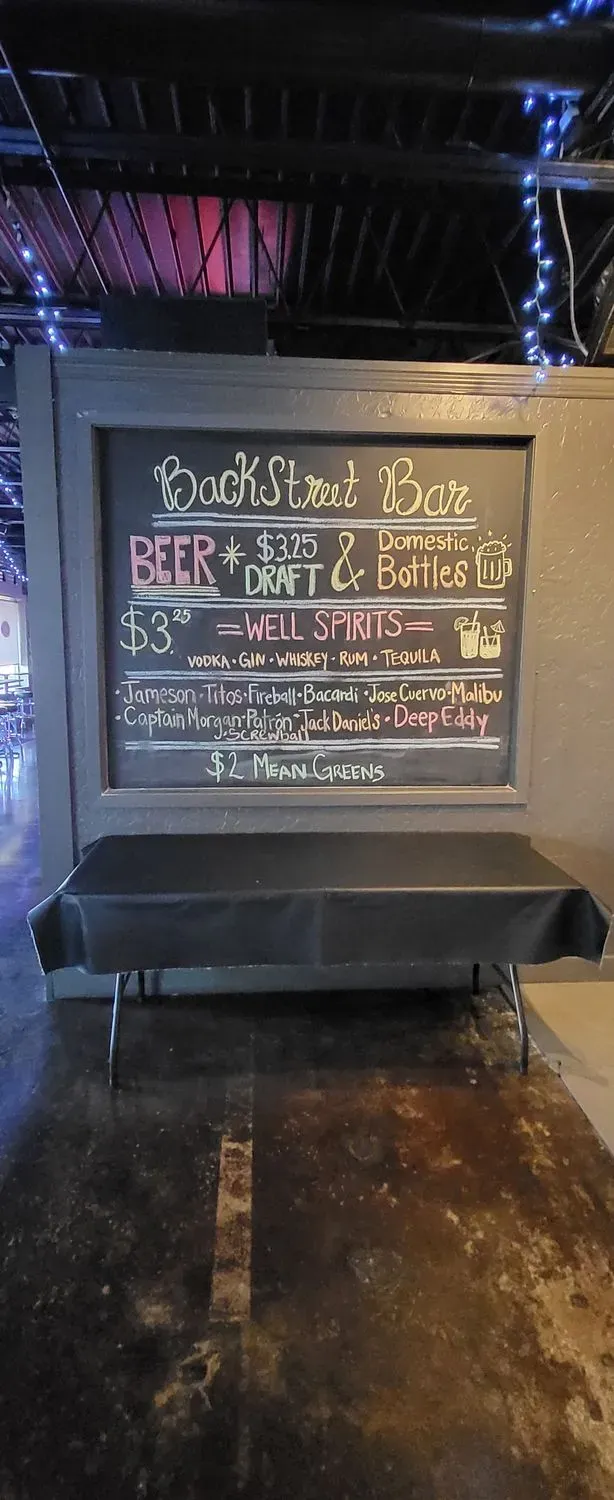 BackStreet Bar
BEER * $3.25 DRAFT & Domestic Bottles
$3.25 =WELL SPIRITS=
VODKA · GIN · WHISKEY · RUM · TEQUILA
· Jameson · Titos · Fireball · Bacardi · Jose Cuervo · Malibu
· Captain Morgan · Patrón · Jack Daniel's · Deep Eddy
Screwball
$2 MEAN GREENS